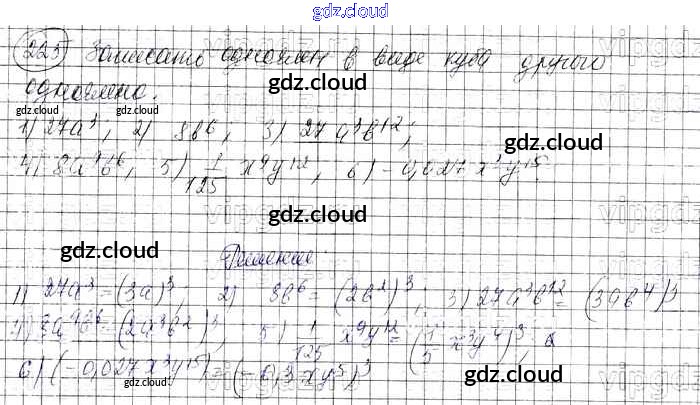 gdz.cloud
225) Записать одночлен в виде куба другого
одночлена.
1) 27a³; 2) 8b⁶; 3) 27a³b¹²;
4) 8a⁹b⁶, 5) 1/125 x⁹y¹², 6) -0,027x³y¹⁵
gdz.cloud
Решение
1) 27a³ = (3a)³; 2) 8b⁶ = (2b²)³; 3) 27a³b¹² = (3ab⁴)³
4) 8a⁹b⁶ = (2a³b²)³, 5) 1/125 x⁹y¹² = (1/5 x³y⁴)³,
6) (-0,027x³y¹⁵) = (-0,3xy⁵)³
gdz.cloud